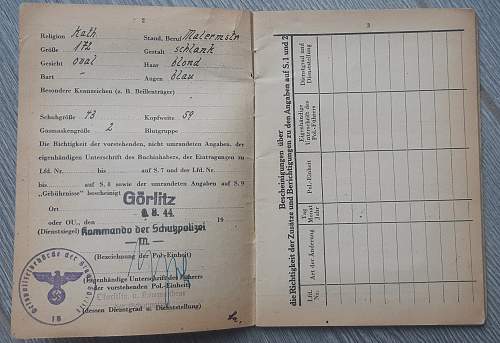 2
Religion Kath Stand, Beruf Malermstr
Größe 172 Gestalt schlank
Gesicht oval Haar blond
Bart - Augen blau
Besondere Kennzeichen (z. B. Brillenträger)
Schuhgröße 43 Kopfweite 59
Gasmaskengröße 2 Blutgruppe
Die Richtigkeit der vorstehenden, nicht umrandeten Angaben, der
eigenhändigen Unterschrift des Buchinhabers, der Eintragungen zu
Lfd. Nr. bis auf S. 7 und der Lfd. Nr.
bis auf S. 8 sowie der umrandeten Angaben auf S. 9
„Gebührnisse“ bescheinigt
Ort Görlitz
oder OU., den 8. 44. 19
(Dienstsiegel) Kommando der Schutzpolizei
— m. —
(Bezeichnung der Pol.-Einheit)
(Eigenhändige Unterschrift des Führers
der vorstehenden Pol.-Einheit)
(dessen Dienstgrad u. Dienststellung)
18
3
Bescheinigungen über
die Richtigkeit der Zusätze und Berichtigungen zu den Angaben auf S. 1 und 2
Lfd. Nr.
Art der Änderung
Tag Monat Jahr
Pol.-Einheit
Eigenhändige Unterschrift des Pol.-Führers
Dienstgrad und Dienststellung